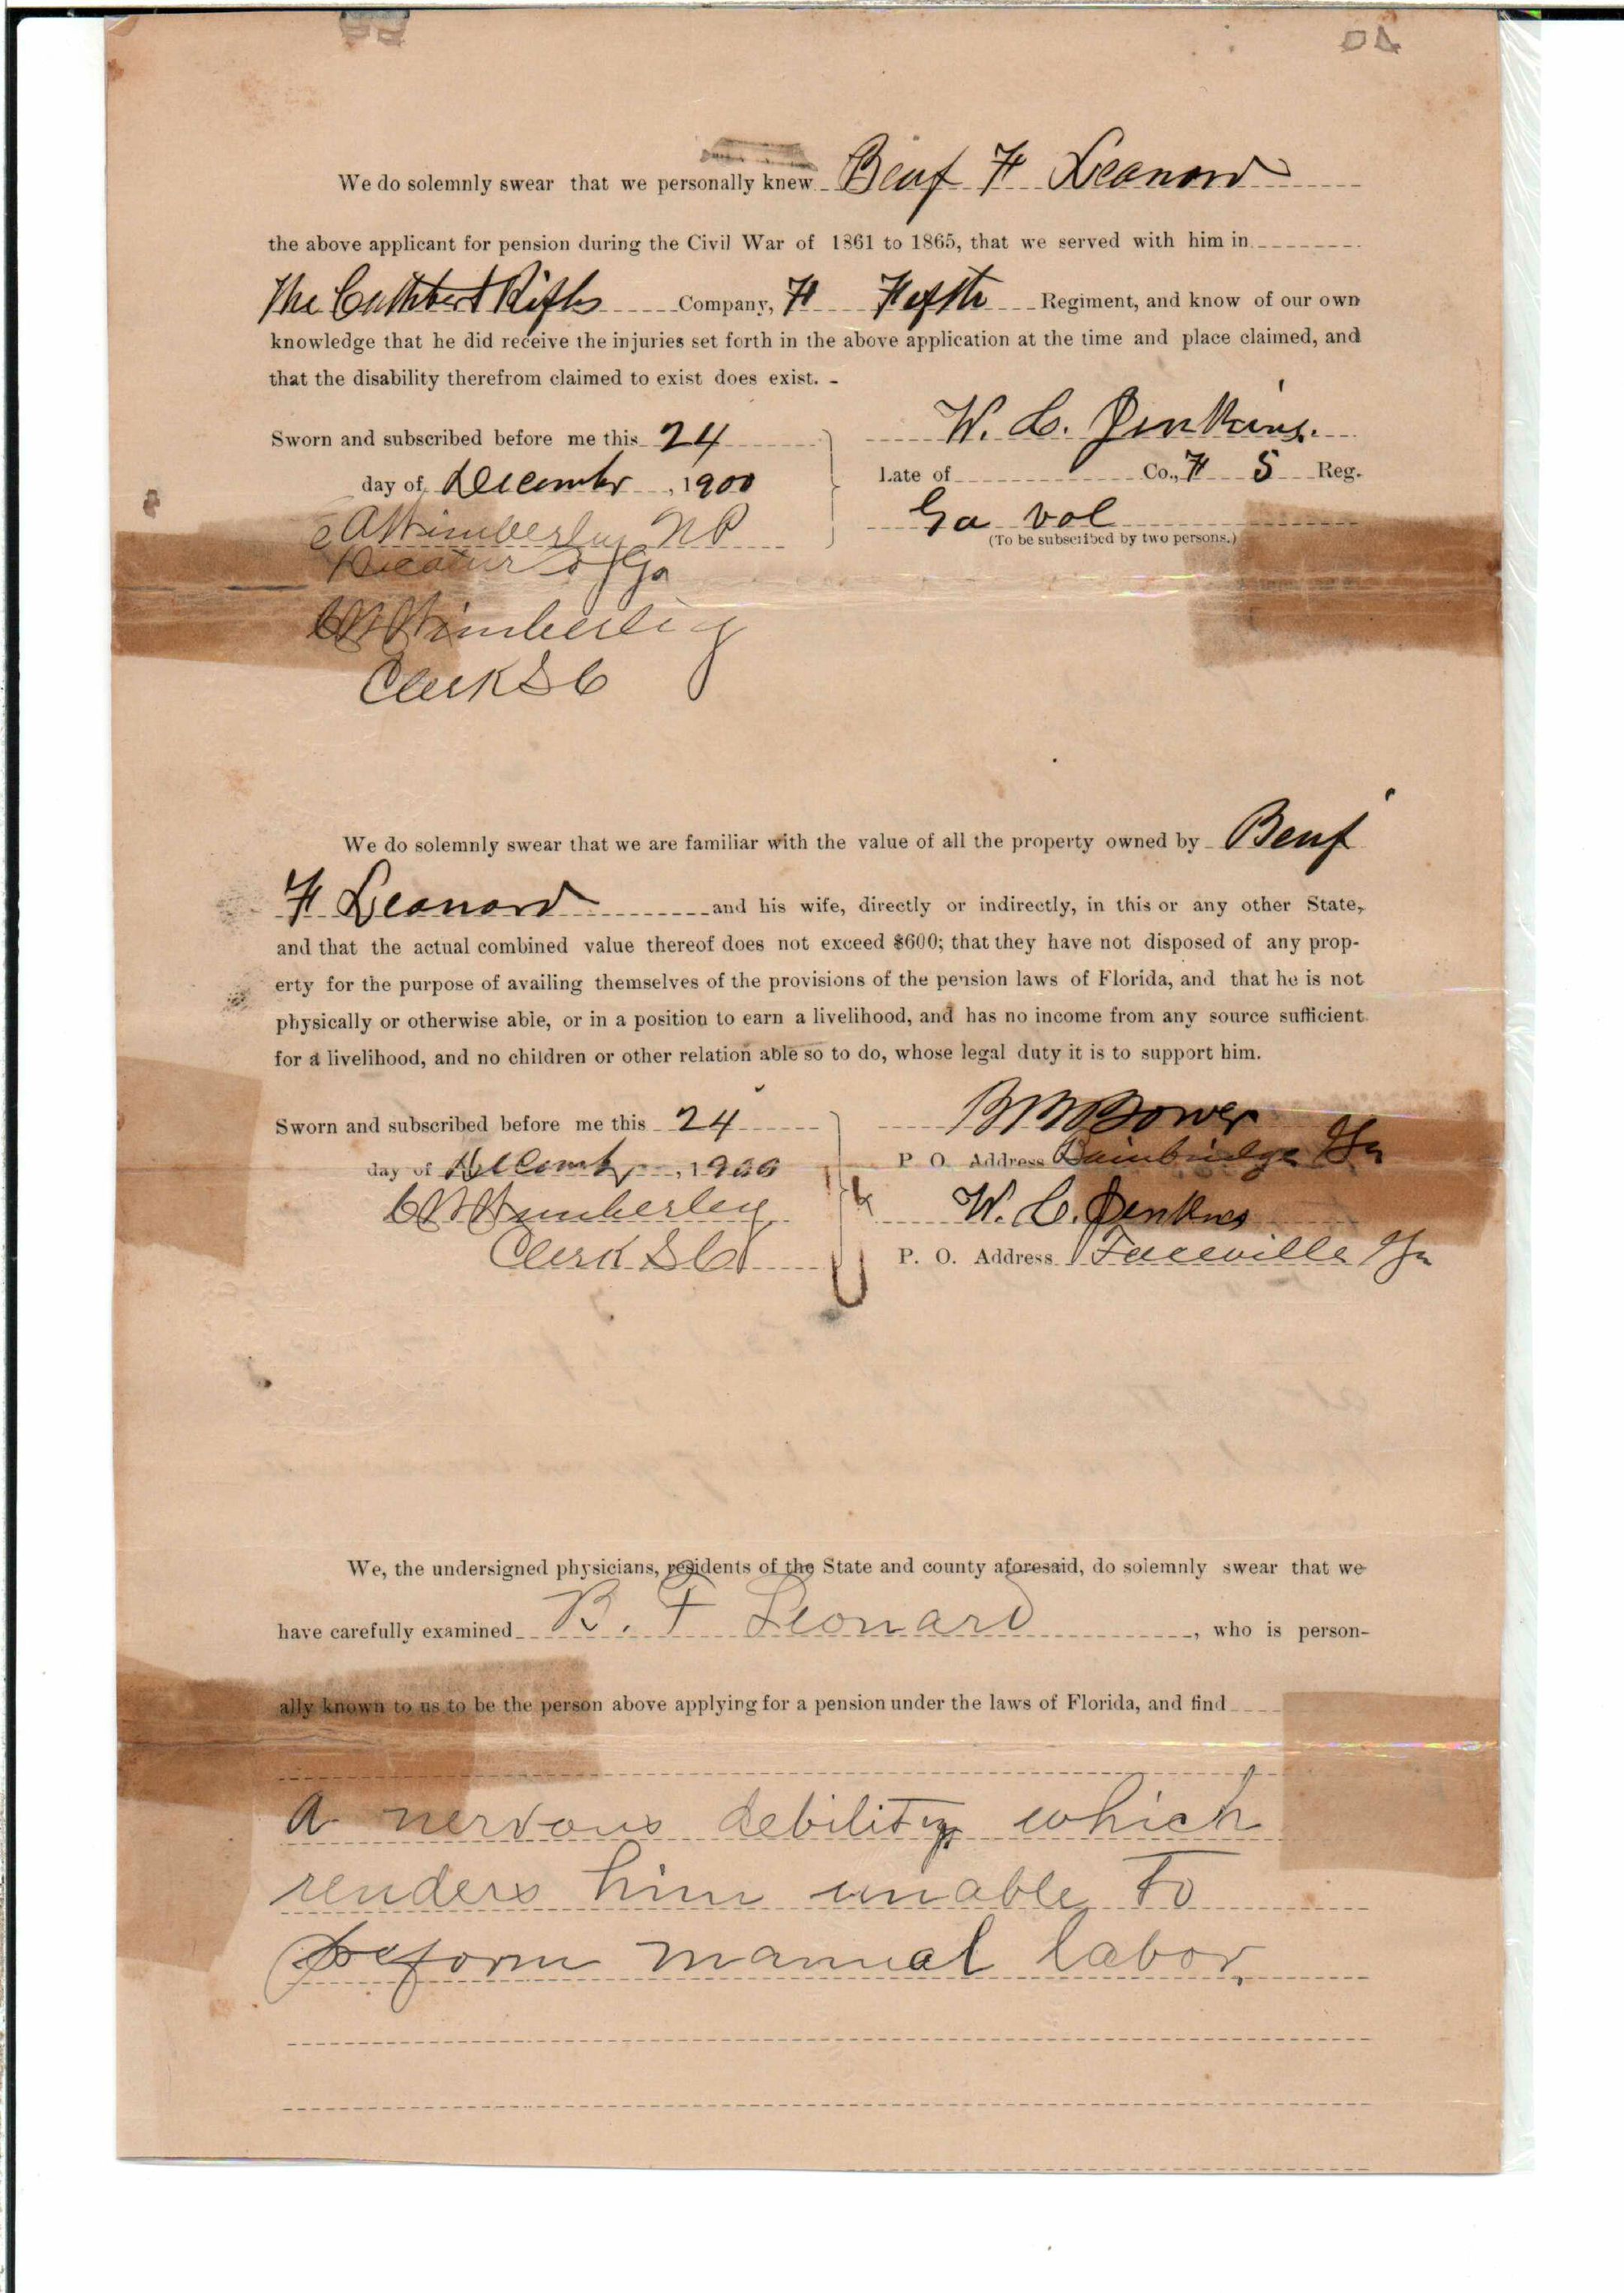 We do solemnly swear that we personally knew Benj F Leanord
the above applicant for pension during the Civil War of 1861 to 1865, that we served with him in
The Cuthbert Rifles Company, F Fifth Regiment, and know of our own
knowledge that he did receive the injuries set forth in the above application at the time and place claimed, and
that the disability therefrom claimed to exist does exist.
Sworn and subscribed before me this 24
day of December, 1900
Wimberley NP
Decatur Ga
Wimberley
Clerk S C
W. C. Jenkins.
Late of Co., F 5 Reg.
Ga vol
(To be subscribed by two persons.)
We do solemnly swear that we are familiar with the value of all the property owned by Benj
F Leanord and his wife, directly or indirectly, in this or any other State,
and that the actual combined value thereof does not exceed $600; that they have not disposed of any prop-
erty for the purpose of availing themselves of the provisions of the pension laws of Florida, and that he is not
physically or otherwise able, or in a position to earn a livelihood, and has no income from any source sufficient
for a livelihood, and no children or other relation able so to do, whose legal duty it is to support him.
Sworn and subscribed before me this 24
day of December, 1900
Wimberley
Clerk S C
Bower
P. O. Address Bainbridge Ga
W. C. Jenkins
P. O. Address Faceville Ga
We, the undersigned physicians, residents of the State and county aforesaid, do solemnly swear that we
have carefully examined B. F Leonard, who is person-
ally known to us to be the person above applying for a pension under the laws of Florida, and find
a nervous debility which
renders him unable to
preform manual labor.